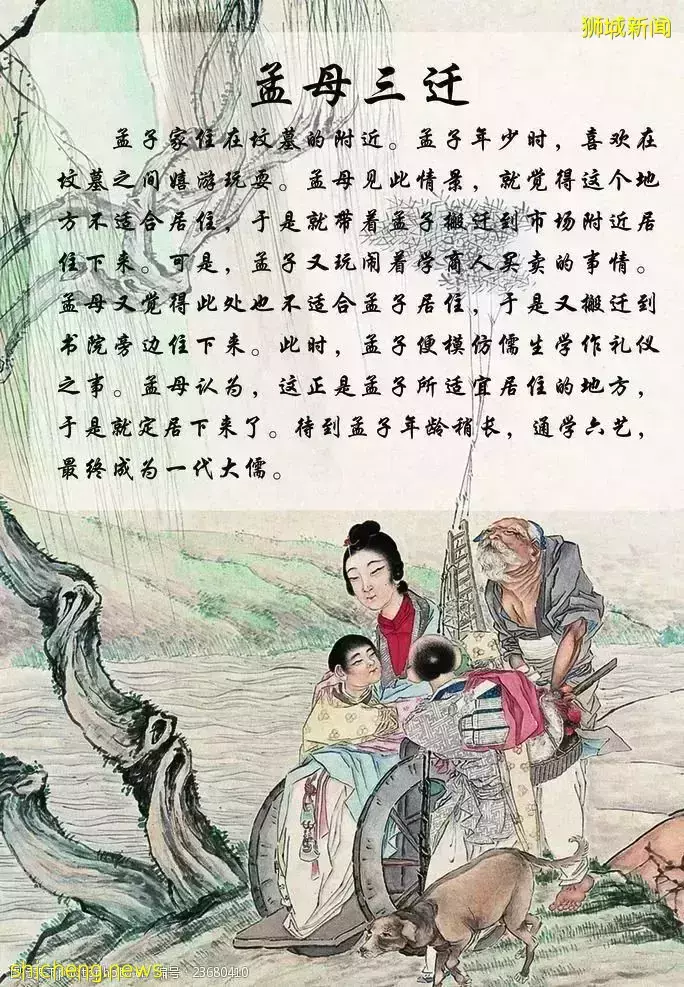 狮城新闻
孟母三迁
孟子家住在坟墓的附近。孟子年少时，喜欢在
坟墓之间嬉游玩耍。孟母见此情景，就觉得这个地
方不适合居住，于是就带着孟子搬迁到市场附近居
住下来。可是，孟子又玩闹着学商人买卖的事情。
孟母又觉得此处也不适合孟子居住，于是又搬迁到
书院旁边住下来。此时，孟子便模仿儒生学作礼仪
之事。孟母认为，这正是孟子所适宜居住的地方，
于是就定居下来了。待到孟子年龄稍长，通学六艺，
最终成为一代大儒。
shicheng.news
编号：23680410